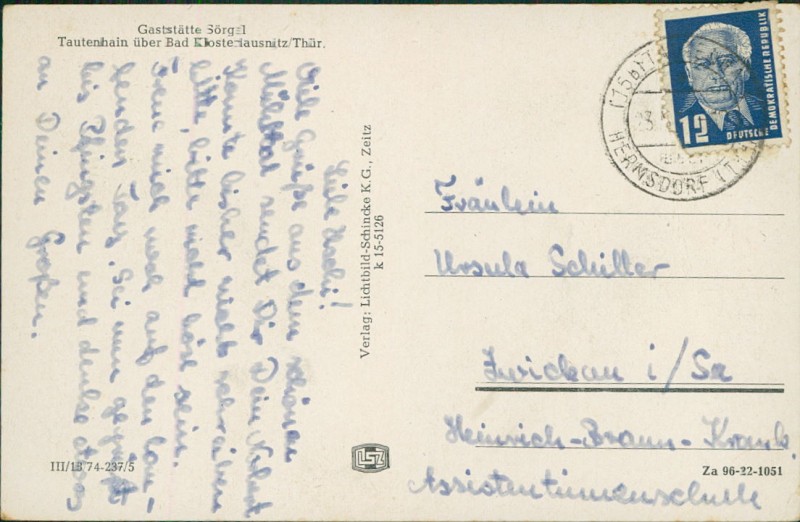 Gaststätte Sörgel
Tautenhain über Bad Klosterlausnitz/Thür.
Liebe Uschi!
Viele Grüße aus dem schönen
Mühltal sendet Dir Dein Helmut
Konnte bisher nicht schreiben
bitte, bitte nicht böse sein.
Freue mich noch auf den kom-
menden Tag. Sei nun gegrüßt
bis Pfingsten und denke etwas
an Deinen Großen.
Verlag: Lichtbild-Schincke K.G., Zeitz
k 15-5126
III/18 74-237/5
LSZ
12
DEUTSCHE
DEMOKRATISCHE REPUBLIK
(15b)
23.
HERMSDORF (Th
Fräulein
Ursula Schiller
Zwickau i/Sa
Heinrich-Braun-Krank.
Assistentinnenschule
Za 96-22-1051